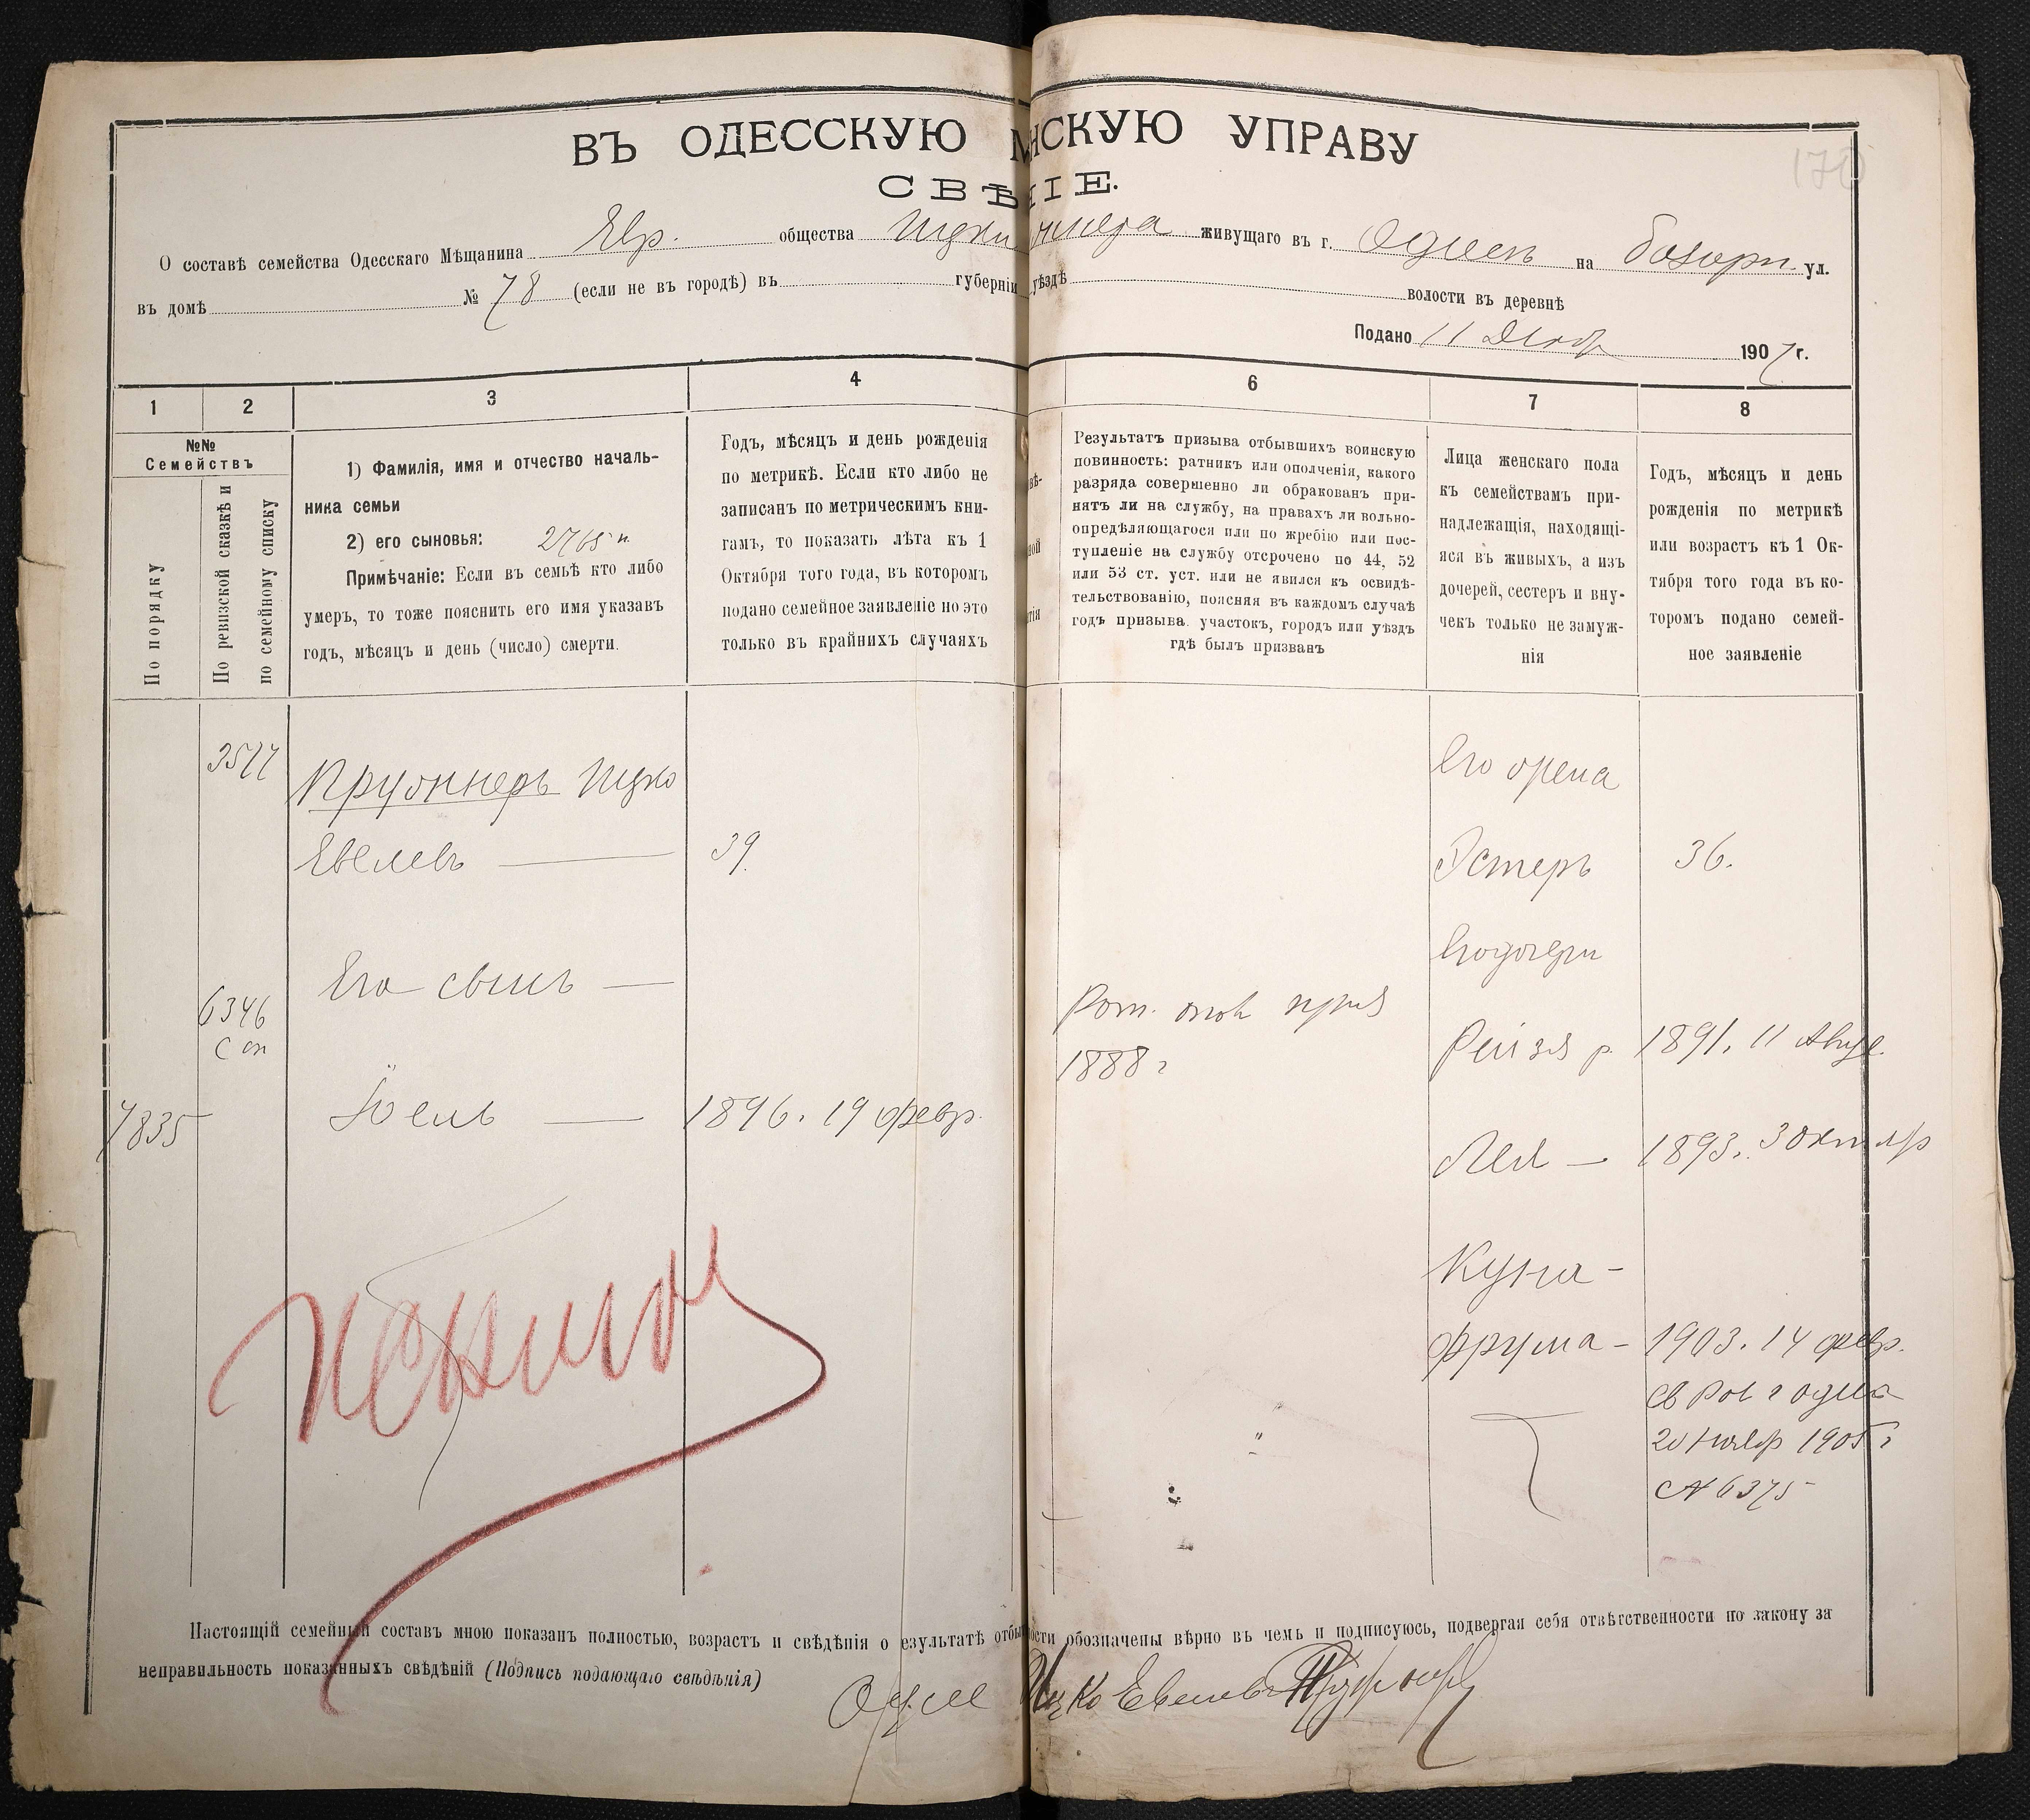 ВЪ ОДЕССКУЮ НСКУЮ УПРАВУ
СВѢ ІЕ.
О составѣ семейства Одесскаго Мѣщанина Евр. общества Ицки живущаго въ г. Одессѣ на Базарн. ул.
въ домѣ № 78 (если не въ городѣ) въ губерніи уѣздѣ волости въ деревнѣ
Подано 11 Декабр 1907 г.
170
1 2 3 4 6 7 8
№№
Семействъ
По порядку
По ревизской сказкѣ и
по семейному списку
1) Фамилія, имя и отчество началь-
ника семьи
2) его сыновья: 2765 н.
Примѣчаніе: Если въ семьѣ кто либо
умеръ, то тоже пояснить его имя указавъ
годъ, мѣсяцъ и день (число) смерти.
Годъ, мѣсяцъ и день рожденія
по метрикѣ. Если кто либо не
записанъ по метрическимъ кни-
гамъ, то показать лѣта къ 1
Октября того года, въ которомъ
подано семейное заявленіе но это
только въ крайнихъ случаяхъ
Результатъ призыва отбывшихъ воинскую
повинность: ратникъ или ополченія, какого
разряда совершенно ли обракованъ при-
нятъ ли на службу, на правахъ ли вольно-
опредѣляющагося или по жребію или пос-
тупленіе на службу отсрочено по 44, 52
или 53 ст. уст. или не явился къ освидѣ-
тельствованію, поясняя въ каждомъ случаѣ
годъ призыва. участокъ, городъ или уѣздъ
гдѣ былъ призванъ
Лица женскаго пола
къ семействамъ при-
надлежащія, находящі-
яся въ живыхъ, а изъ
дочерей, сестеръ и вну-
чекъ только не замуж-
нія
Годъ, мѣсяцъ и день
рожденія по метрикѣ
или возрастъ къ 1 Ок-
тября того года въ ко-
торомъ подано семей-
ное заявленіе
3577
Ицко
Евелевъ 39.
Его сынъ
6346
7835
Іоель 1896. 19 февр.
Рат. опол приз
1888 г
Его жена
Эстеръ 36.
Его дочери
Рейзя р. 1891. 11 Авгус.
Лея 1893. 3 октябр
Куна-
Фрума 1903. 14 февр.
20 ноябр 1905 г
№ 6375
Настоящій семейный составъ мною показанъ полностью, возрастъ и свѣдѣнія о езультатѣ отбы ости обозначены вѣрно въ чемъ и подписуюсь, подвергая себя отвѣтственности по закону за
неправильность показанныхъ свѣдѣній (Подпись подающаго свѣдѣнія)
Ицко Евелевъ